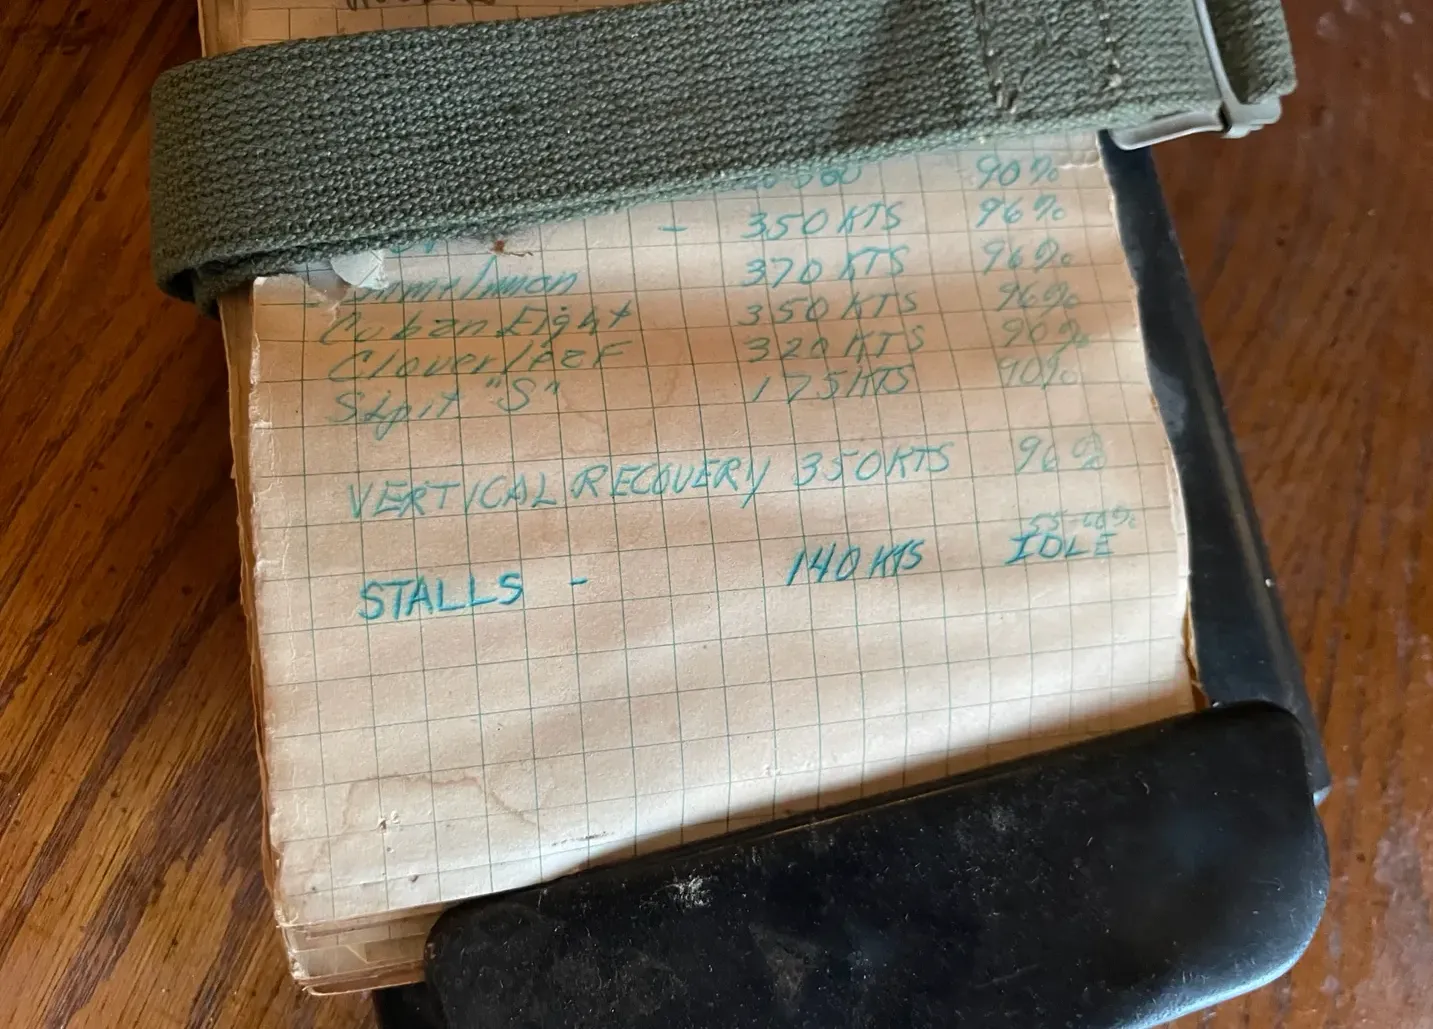 90%
- 350 KTS 96%
370 KTS 96%
Cuban Eight 350 KTS 96%
Cloverleaf 320 KTS 90%
Split "S" 175 KTS 90%
VERTICAL RECOVERY 350KTS 96%
55-60%
STALLS - 140 KTS IDLE